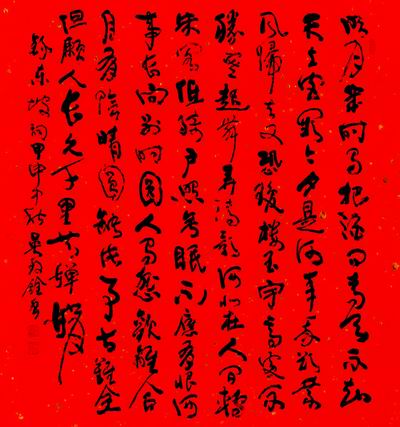 明月幾时有把酒问青天不知
天上宫闕今夕是何年我欲乘
风歸去又恐瓊楼玉宇高處不
勝寒起舞弄清影何似在人间轉
朱阁低绮户照无眠不應有恨何
事长向别时圆人有悲歡離合
月有陰晴圓缺此事古難全
但願人长久千里共嬋娟
録东坡词甲申中秋吴书